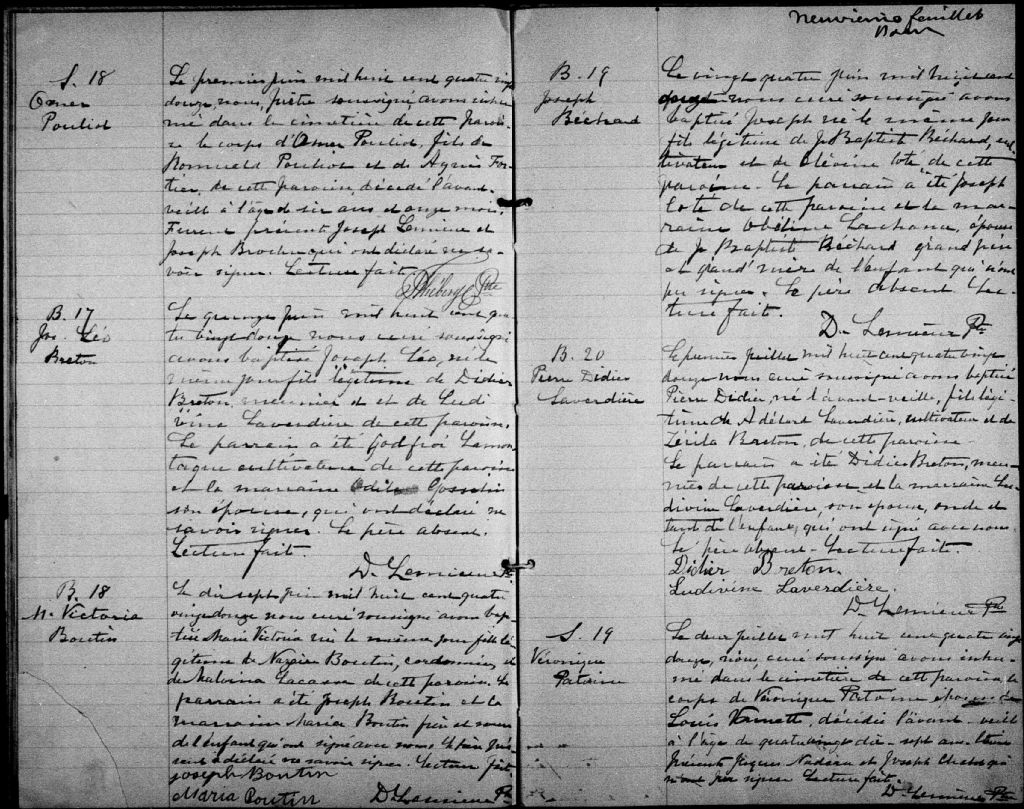 S. 18
Omer
Pouliot
Le premier juin mil huit cent quatre vingt
douze, nous, prêtre soussigné, avons inhu-
mé dans le cimetière de cette parois-
se le corps d'Omer Pouliot, fils de
Romuald Pouliot et de Agnès For-
tier, de cette paroisse, décédé l'avant-
veille à l'âge de six ans et onze mois.
Furent présents Joseph Lemieux et
Joseph Brochu qui ont déclaré ne sa-
voir signer. Lecture faite.
Théberge Ptre
B. 17
Jos Léo
Breton
Le quinze juin mil huit cent qua-
tre vingt douze nous curé soussigné
avons baptisé Joseph Léo, né le
même jour fils légitime de Didier
Breton, meunier et de Ludi
vine Laverdière de cette paroisse.
Le parrain a été Godfroi Lamon-
tagne cultivateur de cette paroisse
et la marraine Odile Gosselin
son épouse, qui ont déclaré ne
savoir signer. Le père absent.
Lecture faite.
D. Lemieux Ptre
B. 18
M. Victoria
Boutin
Le dix sept juin mil huit cent quatre
vingt douze nous curé soussigné avons bap-
tisé Marie Victoria née le même jour fille lé-
gitime de Nazaire Boutin, cordonnier, et
de Malvina Lacasse de cette paroisse. Le
parrain a été Joseph Boutin et la
marraine Maria Boutin frère et soeur
de l'enfant qui ont signé avec nous. Le père pré-
sent a déclaré ne savoir signer. Lecture faite.
Joseph Boutin
Maria Boutin D. Lemieux Ptre
Neuvième feuillet
B. 19
Joseph
Béchard
Le vingt quatre juin mil huit cent
douze nous curé soussigné avons
baptisé Joseph né le même jour
fils légitime de J. Baptist Béchard, cul-
tivateur et de Elévine Coté de cette
paroisse. Le parrain a été Joseph
Coté de cette paroisse et la mar-
raine Obéline Lachance, épouse
de J. Baptist Béchard grand père
et grand'mère de l'enfant qui n'ont
pu signer. Le père absent. Lec-
ture faite.
D. Lemieux Ptre
B. 20
Pierre Didier
Laverdière
Le premier juillet mil huit cent quatre vingt
douze nous curé soussigné avons baptisé
Pierre Didier, né l'avant-veille, fils légi-
time de Adélard Laverdière, cultivateur et de
Zérila Breton, de cette paroisse.
Le parrain a été Didier Breton, meu-
nier de cette paroisse, et la marraine Lu-
divine Laverdière, son épouse, oncle et
tante de l'enfant, qui ont signé avec nous.
Le père absent - Lecture faite.
Didier Breton.
Ludivine Laverdière.
D. Lemieux Ptre
S. 19
Véronique
Patoine
Le deux juillet mil huit cent quatre vingt
douze, nous, curé soussigné avons inhu-
mé dans le cimetière de cette paroisse, le
corps de Véronique Patoine épouse de
Louis Vannette, décédée l'avant-veille
à l'âge de quatre vingt dix-sept ans. Etaient
présents Jacques Nadeau et Joseph
n'ont pu signer Lecture faite.
D. Lemieux Ptre